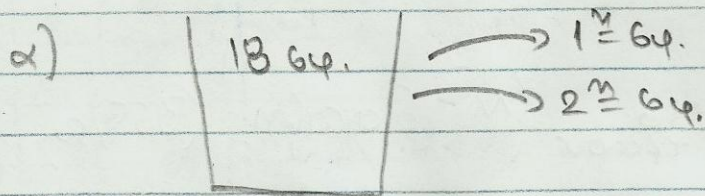 α)
18 σφ.
1η σφ.
2η σφ.